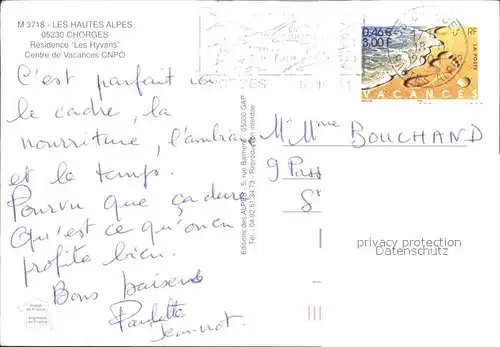 M 3718 - LES HAUTES ALPES
05230 CHORGES
Résidence "Les Hyvans"
Centre de Vacances CNPO
C'est parfait tout
le cadre, la
nourriture, l'ambiance
et le temps.
Pourvu que ça dure
Qu'est ce qu'on en
profite bien.
Bons baisers
Paulette
Jeannot.
Editions des ALPES - 5, rue 05000 GAP
Tél.: 04.92.51.34.73 - Reproduction interdite
0,46€
3,00F
RF
LA POSTE
VACANCES
M. Mme BOUCHAND
9 Pass
St
privacy protection
Datenschutz
Image de France
Imprimé en France